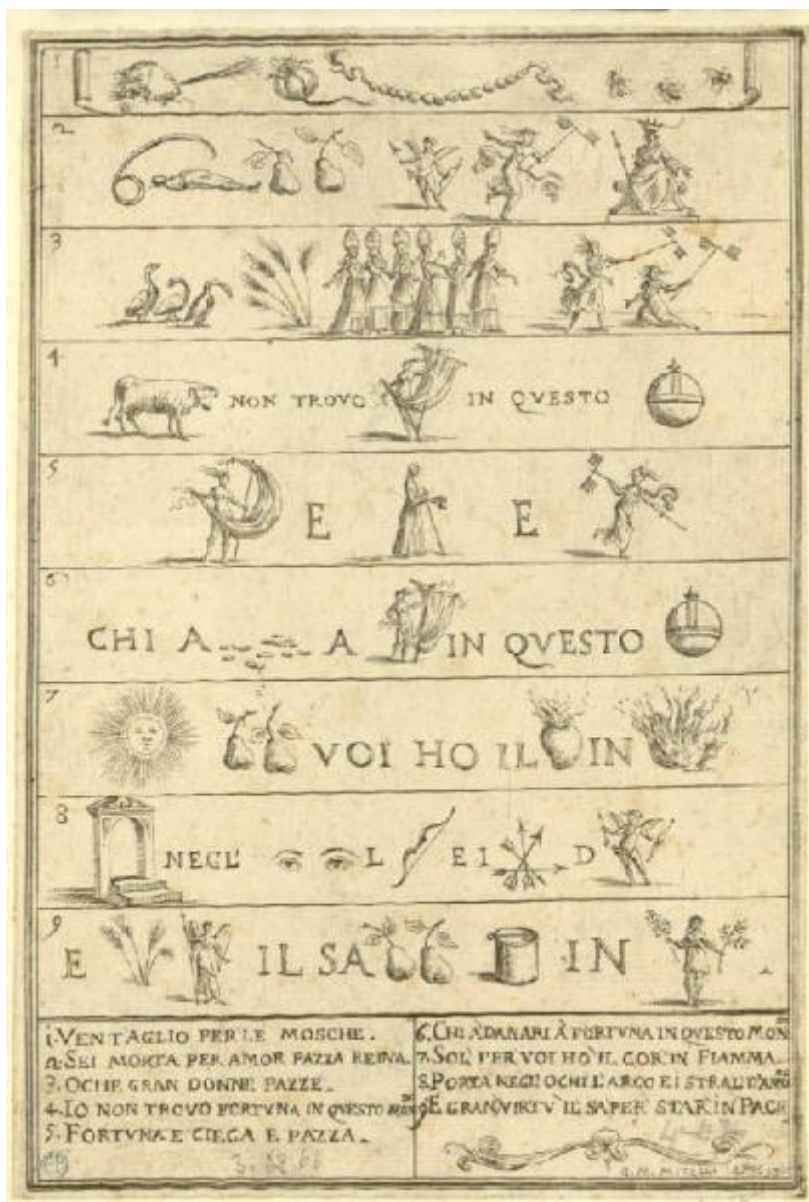 1
2
3
4 NON TROVO IN QVESTO
5 E E
6 CHI A A IN QVESTO
7 VOI HO IL IN
8 NEGL' L E I D
9 E IL SA IN
1. VENTAGLIO PER LE MOSCHE.
2. SEI MORTA PER AMOR PAZZA REINA.
3. OCHE GRAN DONNE PAZZE.
4. IO NON TROVO FORTVNA IN QVESTO MON
5. FORTVNA E CIECA E PAZZA.
6. CHI À DANARI À FORTVNA IN QVESTO MON
7. SOL' PER VOI HO' IL COR IN FIAMMA.
8. PORTA NEGL' OCHI L'ARCO E I STRALI D'AMO
9. E GRAN VIRTV' IL SAPER' STAR' IN PACE
G. M. MITELLI